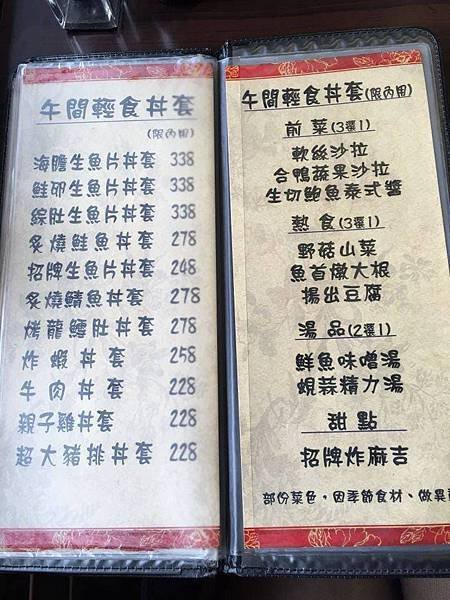 午間輕食丼套
(限內用)
海膽生魚片丼套 338
鮭卵生魚片丼套 338
綜肚生魚片丼套 338
炙燒鮭魚丼套 278
招牌生魚片丼套 248
炙燒鯖魚丼套 278
烤龍鱈肚丼套 278
炸蝦丼套 258
牛肉丼套 228
親子雞丼套 228
超大豬排丼套 228
午間輕食丼套(限內用)
前菜(3選1)
軟絲沙拉
合鴨蔬果沙拉
生切鮑魚泰式醬
熱食(3選1)
野菇山菜
魚首燉大根
揚出豆腐
湯品(2選1)
鮮魚味噌湯
蜆蒜精力湯
甜點
招牌炸麻吉
部份菜色，因季節食材、做異